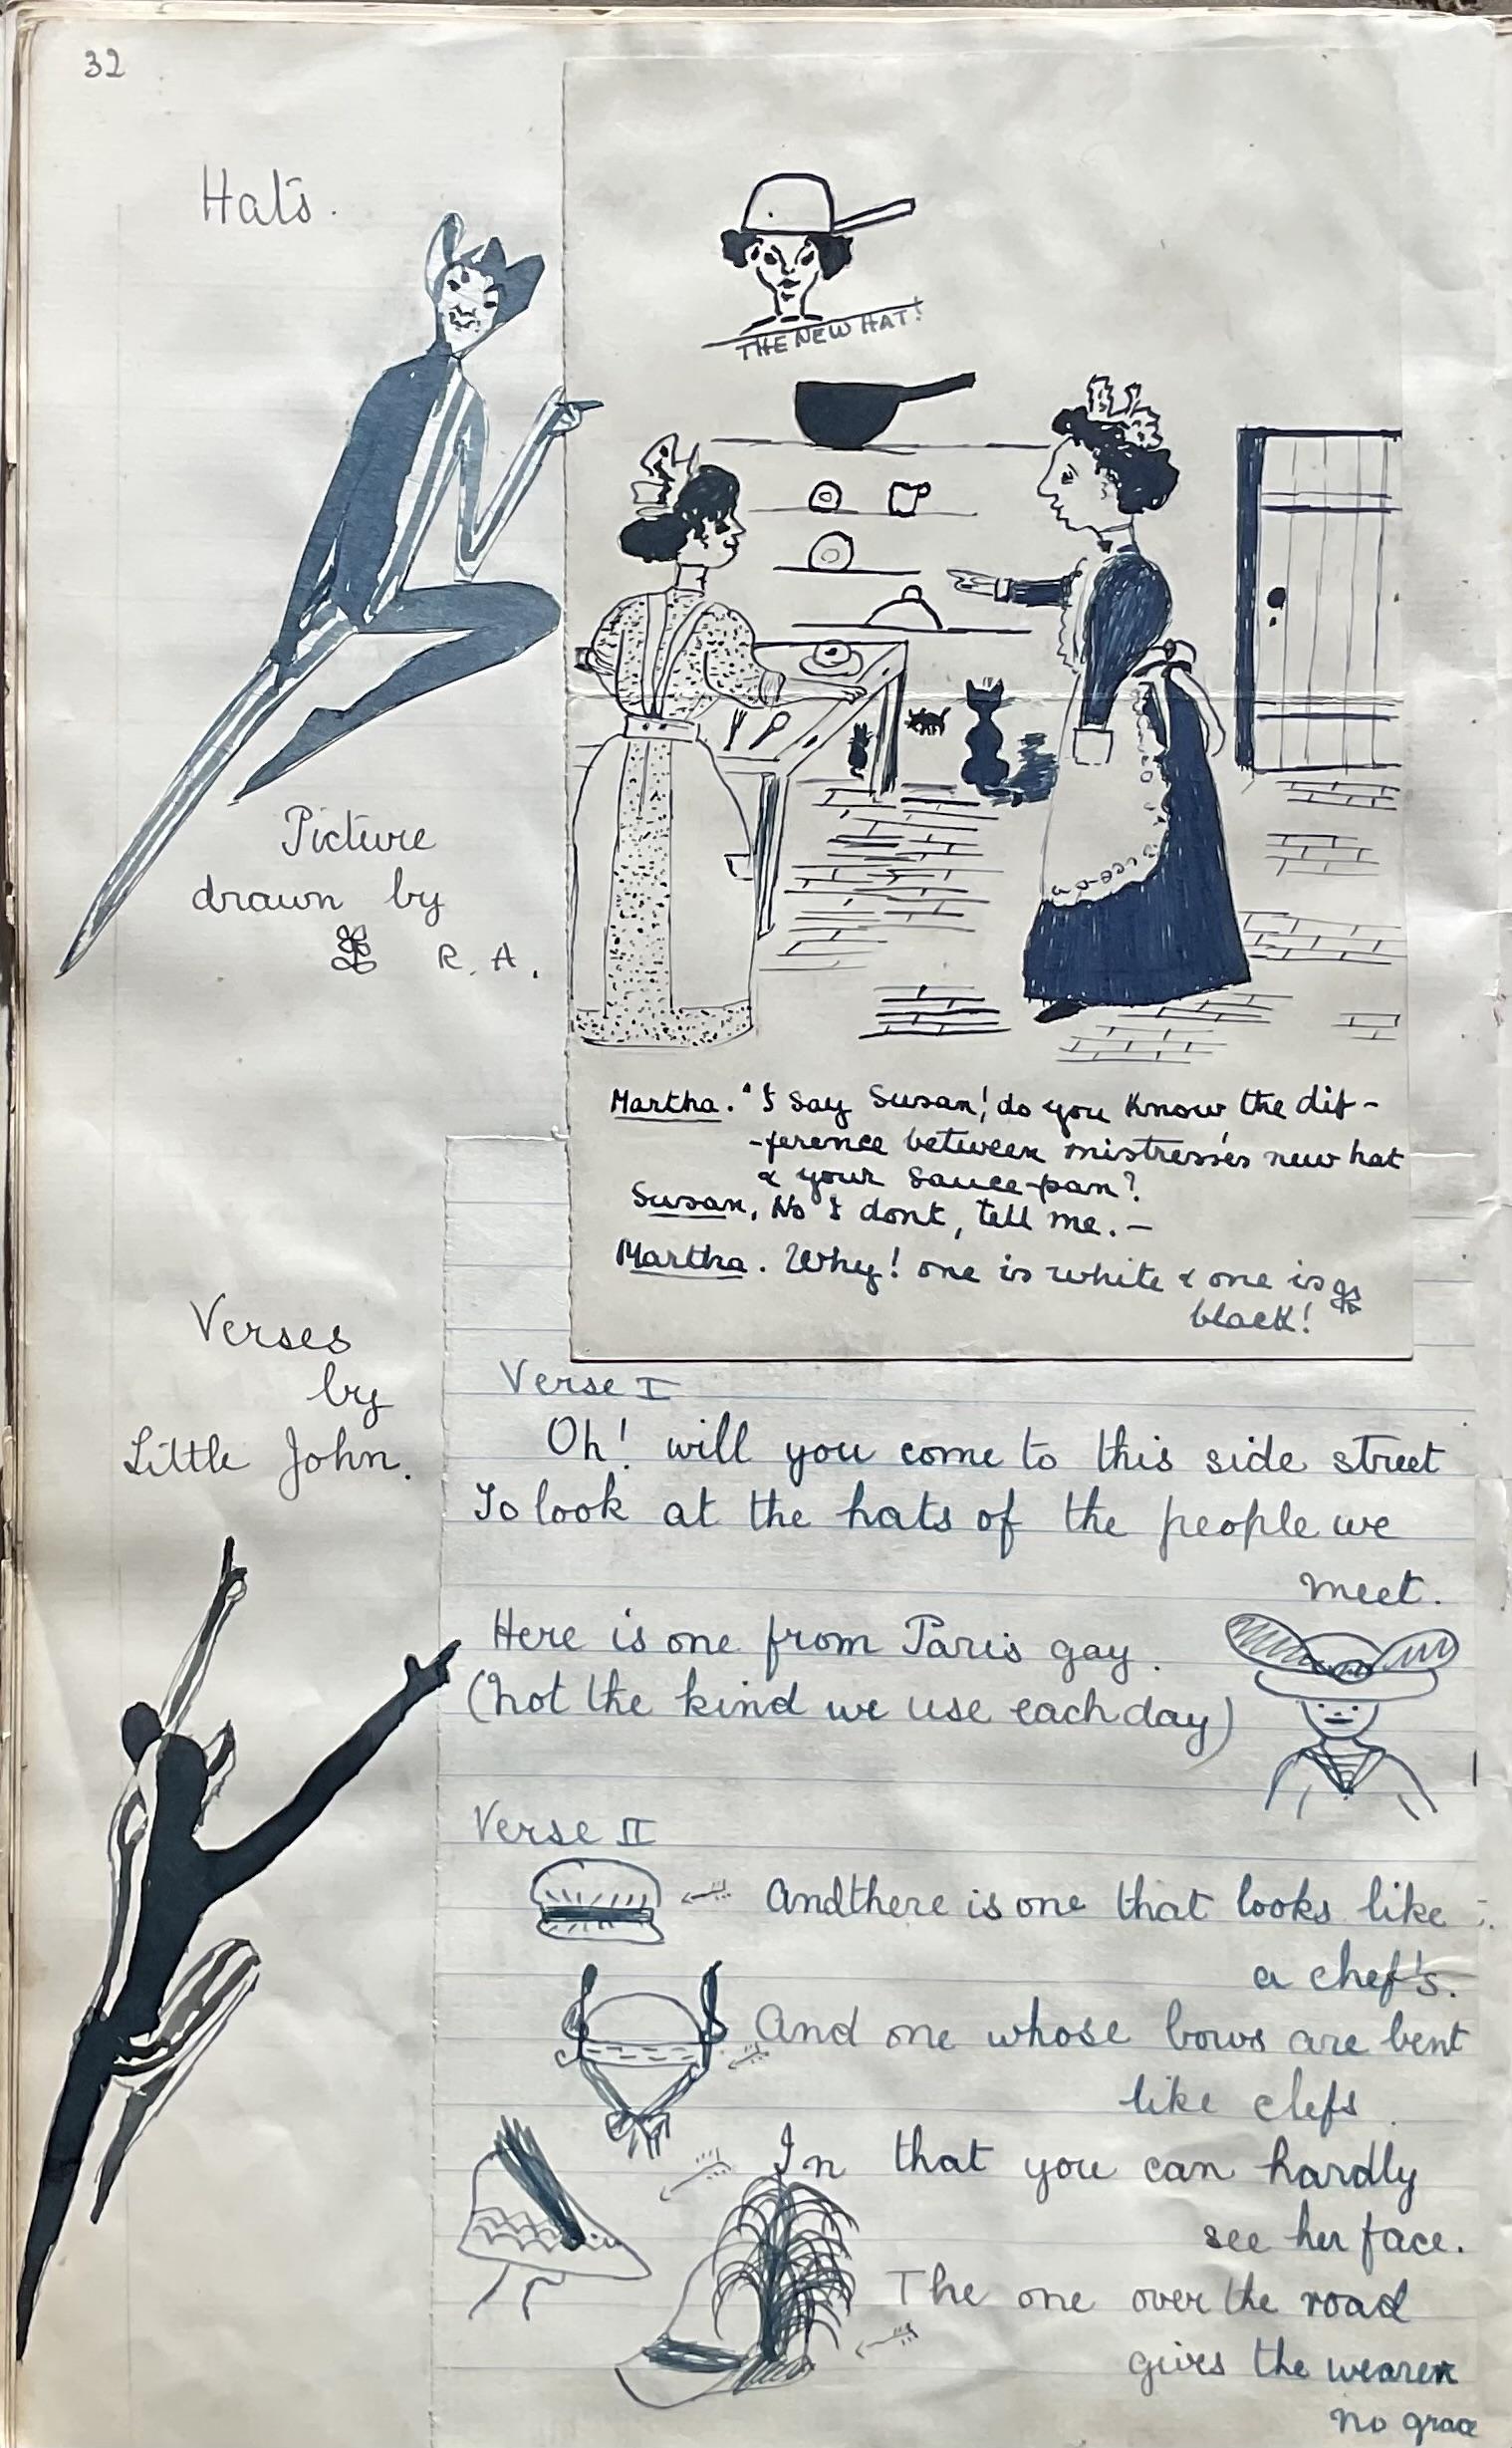 32
Hats.
THE NEW HAT!
Picture
drawn by
R. A.
Martha. "I say Susan! do you know the dif-
-ference between mistress's new hat
& your sauce-pan?
Susan, No I dont, tell me. —
Martha. Why! one is white & one is
black!
Verses
by
Little John.
Verse I
Oh! will you come to this side street
To look at the hats of the people we
meet.
Here is one from Paris gay.
(Not the kind we use each day)
Verse II
And there is one that looks like
a chef's.
And one whose bows are bent
like clefs.
In that you can hardly
see her face.
The one over the road
gives the wearer
no grace